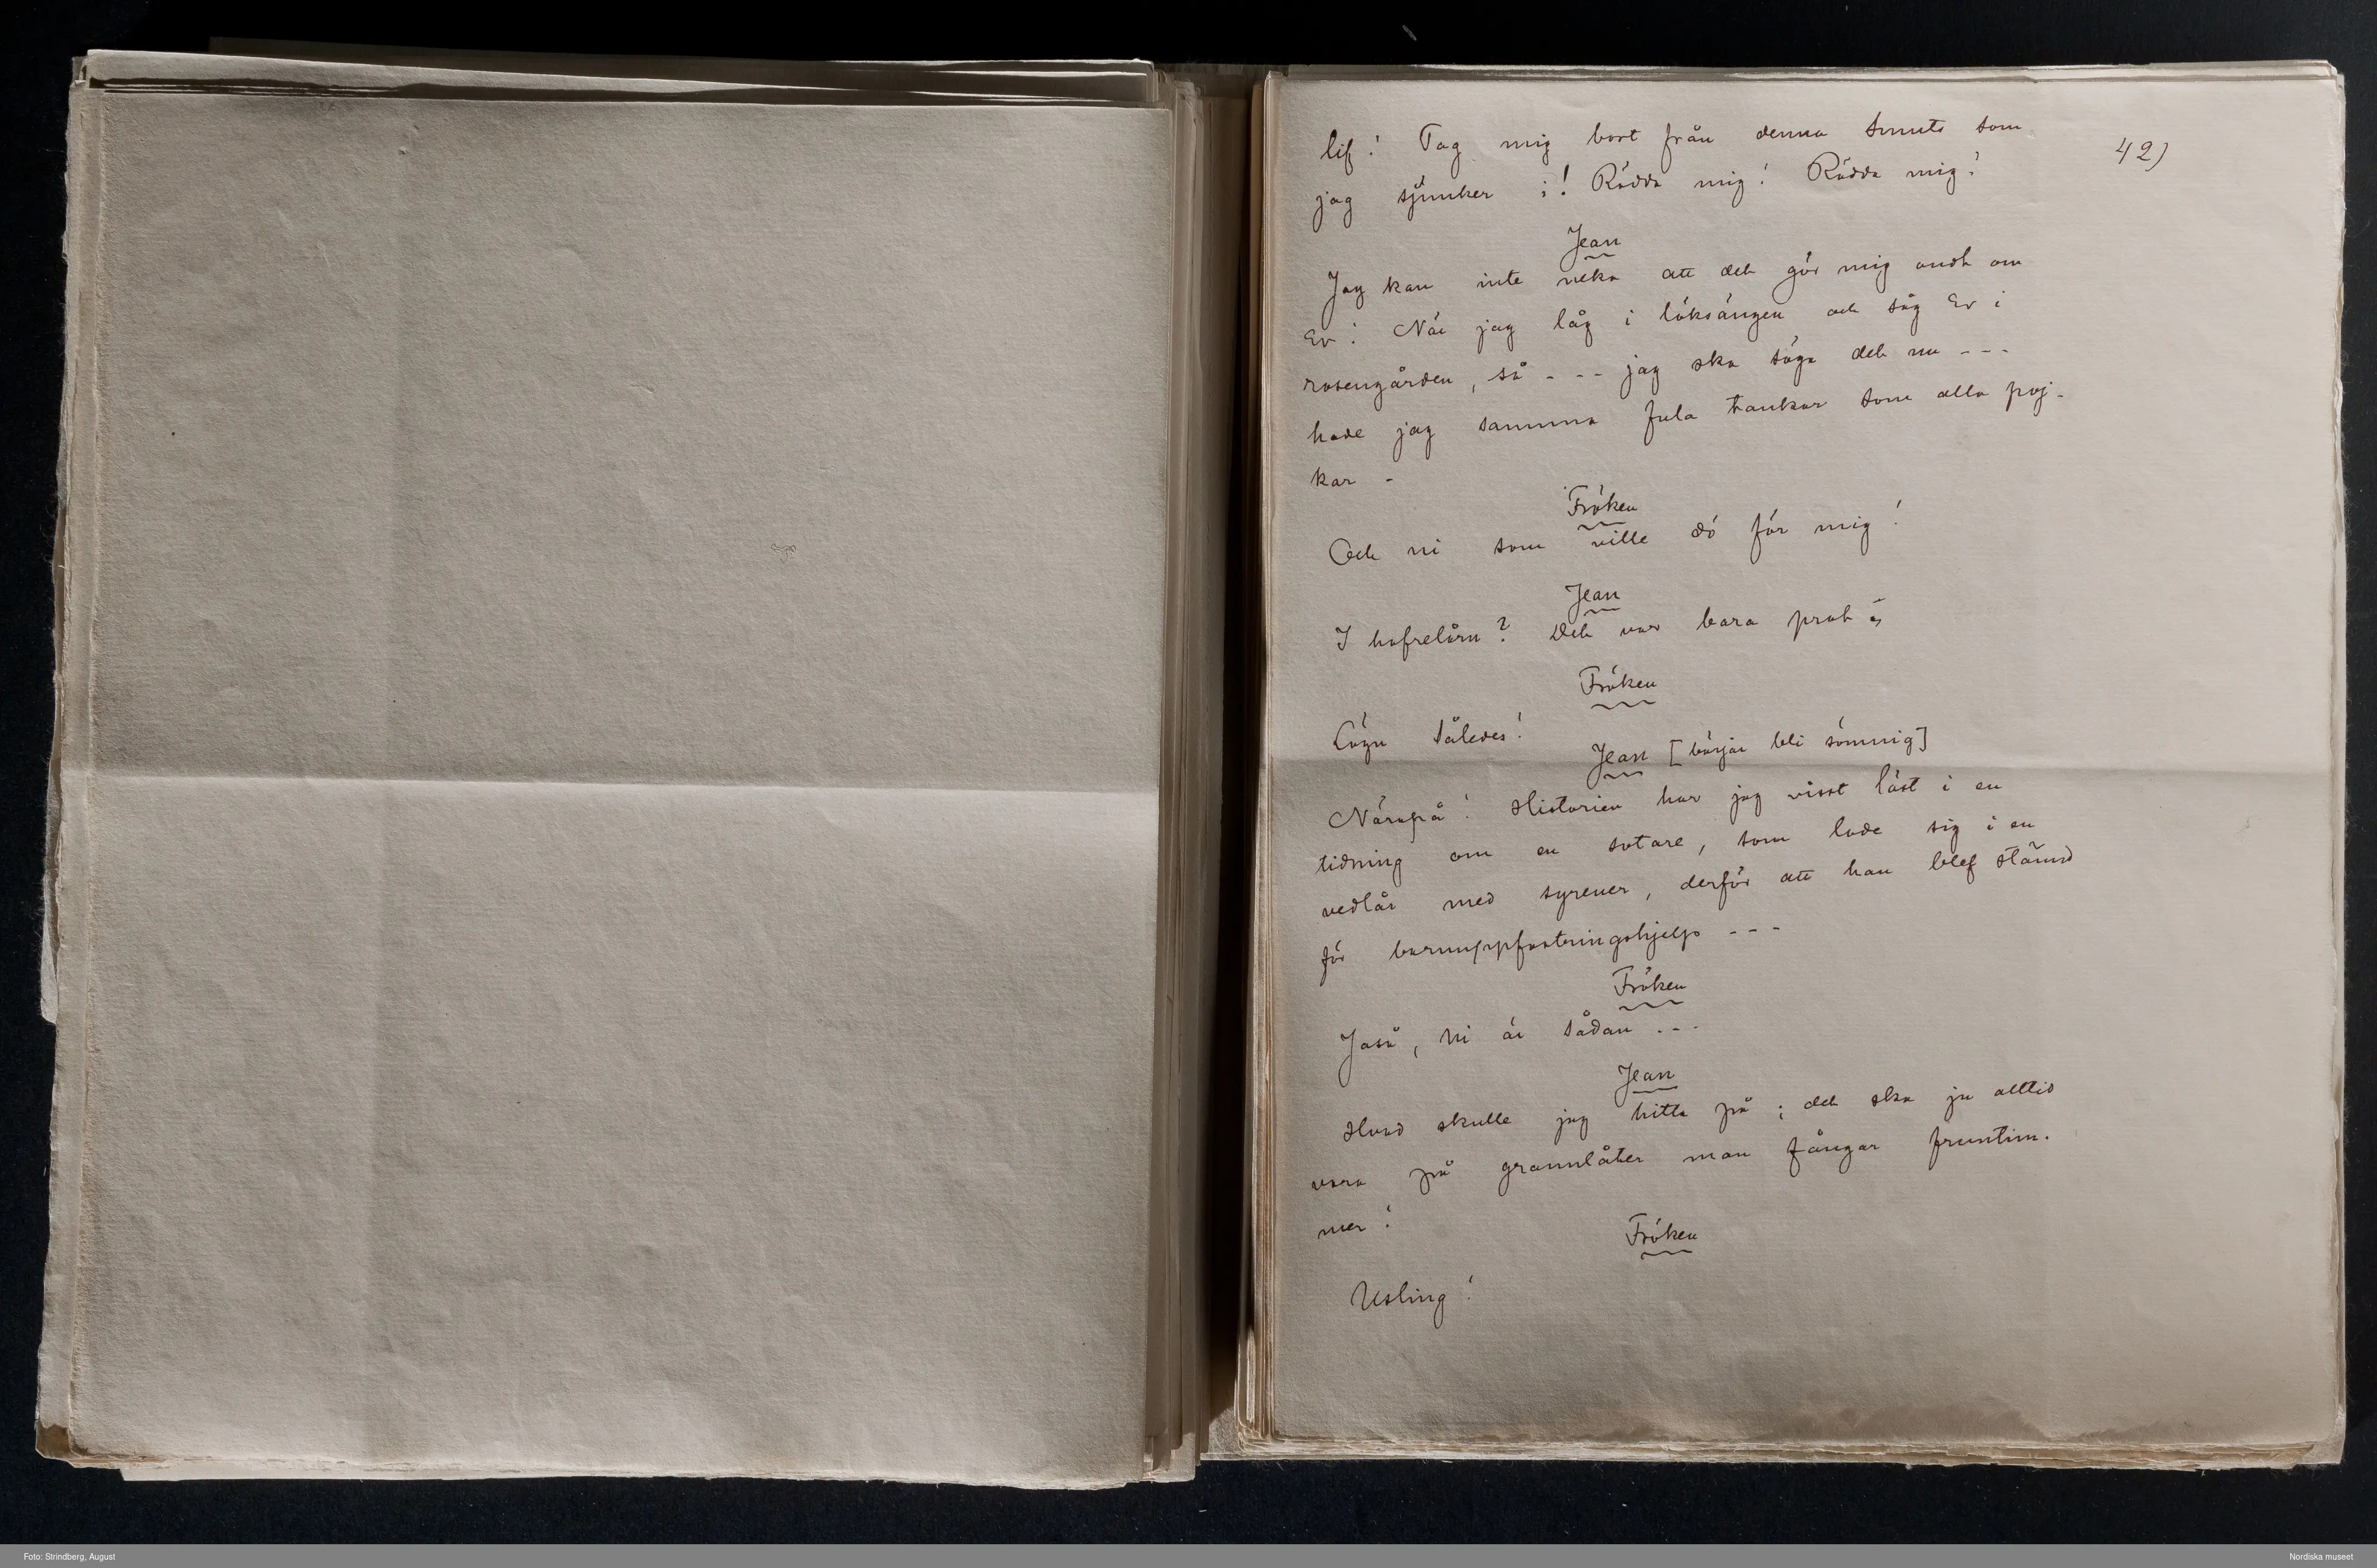 42)
lif! Tag mig bort från denna smuts som
jag sjunker i! Rädda mig! Rädda mig!
Jean
Jag kan inte neka att det gör mig ondt om
Er! När jag låg i löksängen och såg Er i
rosengården, så - - - jag ska säga det nu - - -
hade jag samma fula tankar som alla poj-
kar -
Fröken
Och ni som ville dö för mig!
Jean
I hafrelårn? Det var bara prat
Fröken
Lögn således!
Jean [börjar bli sömnig]
Närapå! Historien har jag visst läst i en
tidning om en sotare, som lade sig i en
vedlår med syrener, derför att han blef stämd
för barnuppfostringshjelp - - -
Fröken
Jaså, ni är sådan - - -
Jean
Hvad skulle jag hitta på; det ska ju alltid
vara på grannlåter man fångar fruntim-
mer!
Fröken
Usling!
Foto: Strindberg, August
Nordiska museet